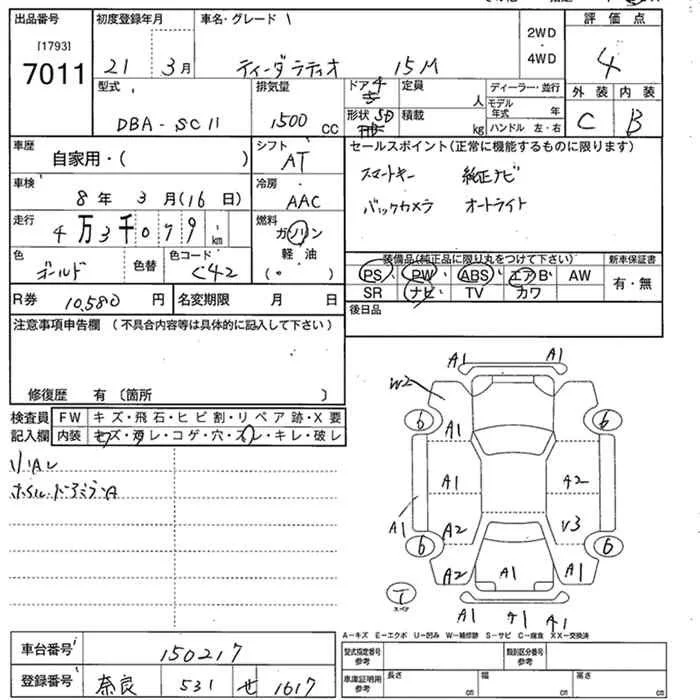 出品番号 初度登録年月 車名・グレード 2WD 評価点
[1793]
7011 21 3月 ティーダラティオ 15M 4WD 4
型式 排気量 ドア 4 定員 人 ディーラー・並行 外装 内装
DBA-SC11 1500 CC 形状 SD 積載 kg モデル年式 年 ハンドル 左・右 C B
車歴 自家用・( ) シフト AT セールスポイント(正常に機能するものに限ります)
車検 8年 3月(16日) 冷房 AAC スマートキー 純正ナビ
走行 4万3千079 km 燃料 ガソリン バックカメラ オートライト
軽油
色 ゴールド 色替 色コード C42 ( ) 装備品(純正品に限り丸をつけて下さい) 新車保証書
PS PW ABS エアB AW 有・無
R券 10,580円 名変期限 月 日 SR ナビ TV カワ
注意事項申告欄 (不具合内容等は具体的に記入して下さい) 後日品
修復歴 有〔箇所 〕
検査員 FW キズ・飛石・ヒビ割・リペア跡・X要
記入欄 内装 キズ・汚レ・コゲ・穴・スレ・キレ・破レ
A1 A1
W2
6 6
A1
A1 A2
A1 A2 V3
6 6
A2 A1 A1
T
スペア
A1 A1 A1
A-キズ E-エクボ U-凹み W-補修跡 S-サビ C-腐食 XX-交換済
車台番号 150217 型式指定番号 参考 類別区分番号 参考
登録番号 奈良 531 せ 1617 車庫証明用 参考 長さ cm 幅 cm 高さ cm